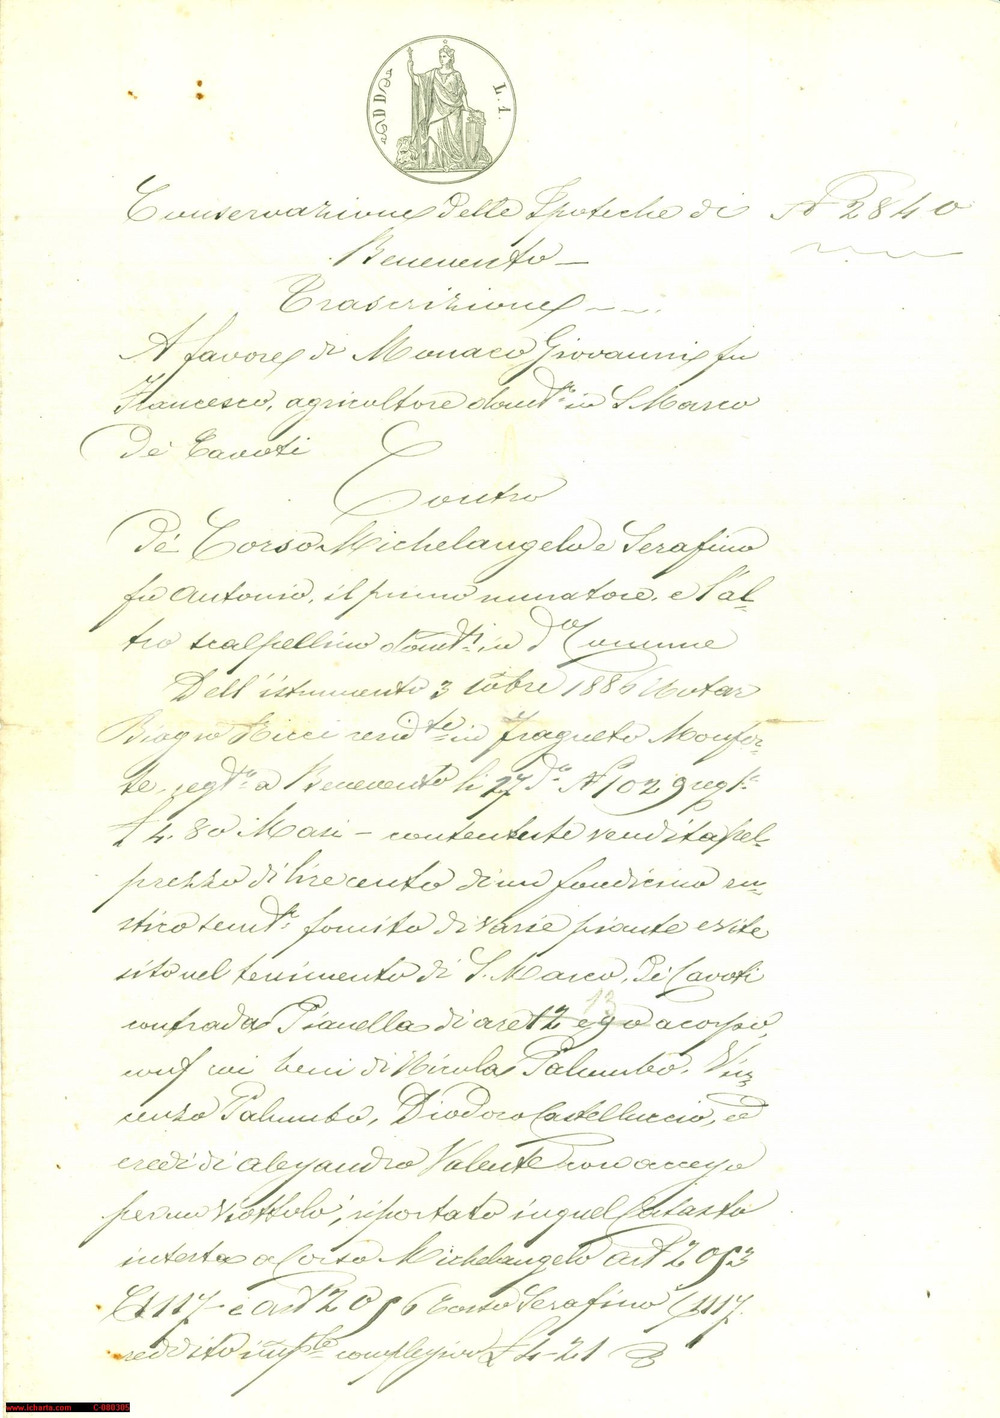 L. 1.
Conservazione delle Ipoteche di N° 2840
Benevento
Trascrizione
A favore di Monaco Giovanni fu
Francesco, agricoltore domto in S. Marco
de' Cavoti
Contro
De' Corso Michelangelo e Serafino
fu Antonio, il primo muratore, e l'al-
tro scalpellino domti in do Comune
Dell'istrumento 3 10bre 1886 Notar
Biagio Ricci residte in Fragneto Monfor-
te, regto a Benevento li 27 do N° 1029 regto
£ 4.80 Masi - contenente vendita pel
prezzo di lire cento di un fondicino ru-
stico semte fornito di varie piante e vite
sito nel tenimento di S. Marco de' Cavoti
contrada Pianella di are 12 e 90 a corpo,
conf coi beni di Nicola Palumbo, Vin-
cenzo Palumbo, Diodoro Castelluccio, ed
eredi di Alessandro Valente con accesso
per un viottolo, riportato in quel Catasto
in testa a Corso Michelangelo art 2053
1117 e art 2056 Corso Serafino 1117
reddito imple complessivo £ 4-21
www.icharta.com C-080305